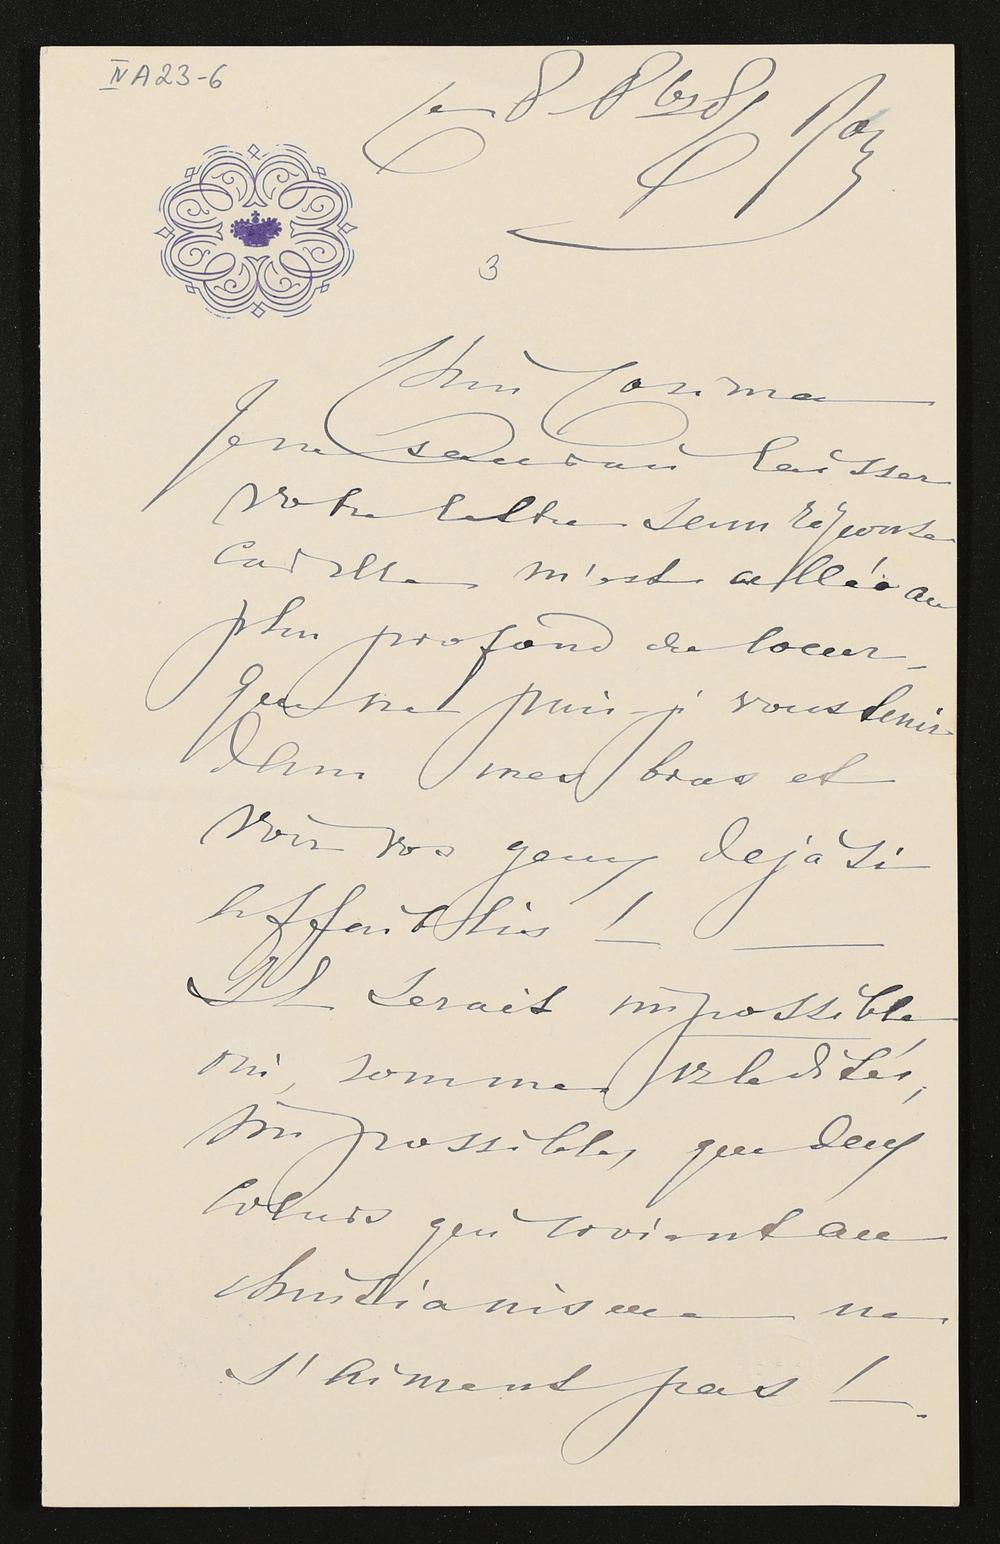 IV A 23-6
le 8 8br 81
3
Cosima
Je ne saurais laisser
votre lettre sans réponse
car elle m'est allée au
plus profond du coeur,
que ne puis-je vous tenir
dans mes bras et
voir vos yeux dejà si
affaiblis !
Il serait impossible
oui, comme vous le dites,
impossible, que deux
coeurs qui croient au
christianisme ne
s'aiment pas !